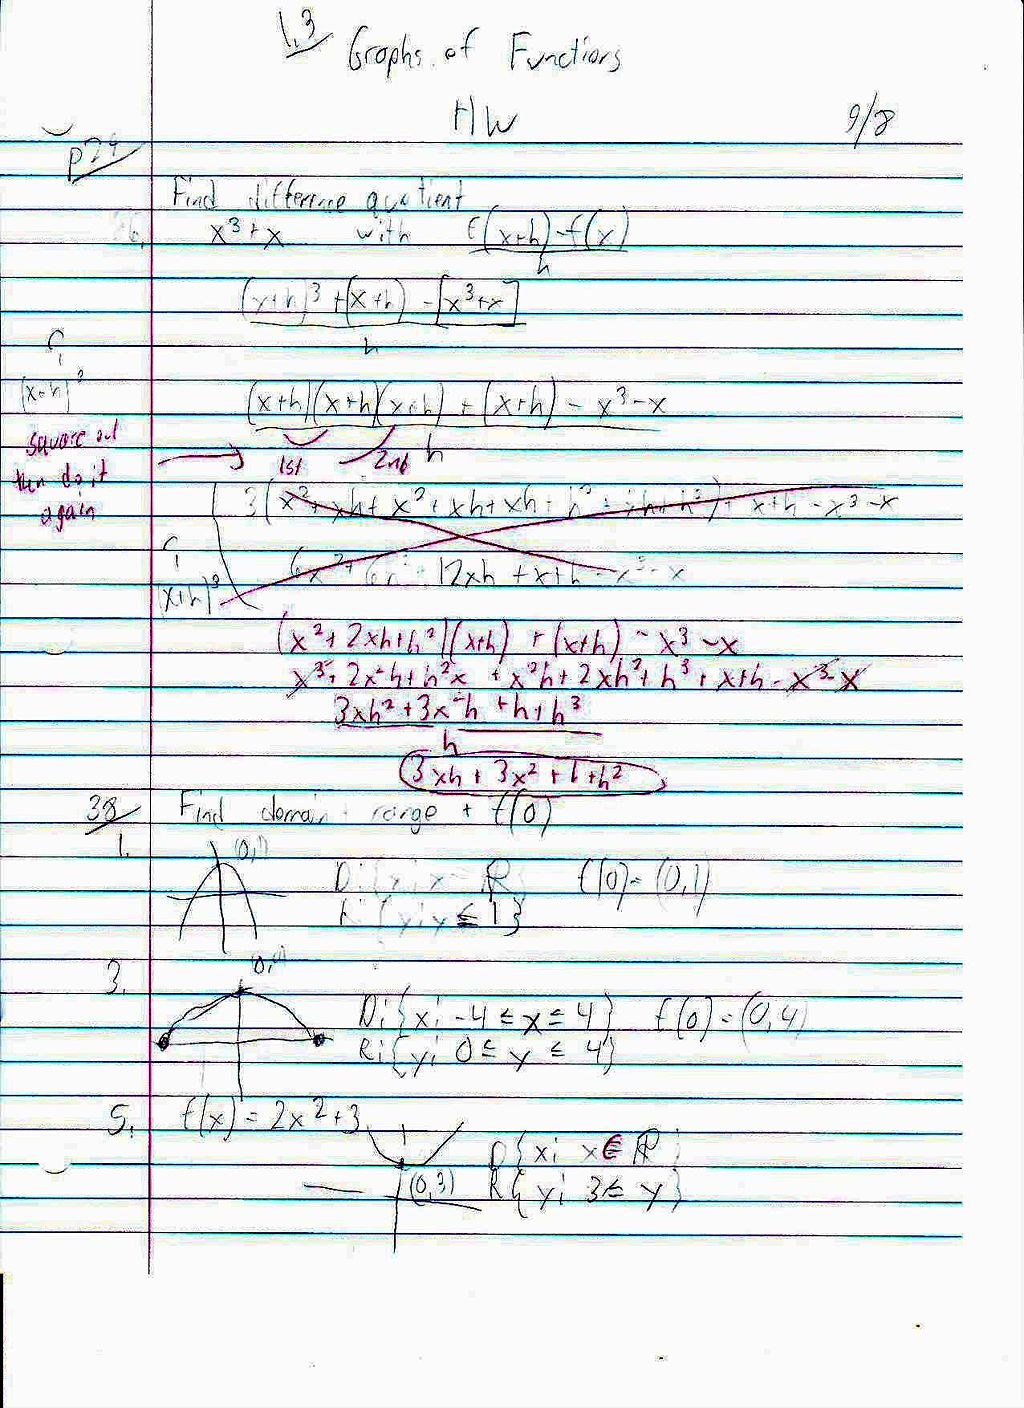 1.3
Graphs of Functions
HW 9/8
p24
Find difference quotient
6. x³+x with f(x+h)-f(x)
h
(x+h)³ + (x+h) - [x³+x]
h
(x+h)³
(x+h)(x+h)(x+h) + (x+h) - x³-x
h
square out
then do it
again
1st 2nd
3(x²+xh+x²+xh+xh+h²+xh+h²)+ x+h -x³-x
(x+h)³
6x²+6h²+12xh+x+h-x³-x
(x²+2xh+h²)(x+h) + (x+h) - x³-x
x³+2x²h+h²x + x²h+2xh²+h³+x+h-x³-x
3xh²+3x²h+h+h³
h
3xh+3x²+1+h²
38 Find domain range + f(0)
1. (0,1)
D:{x; x = ℝ} f(0)=(0,1)
R:{y; y≤1}
3.
D:{x; -4≤x≤4} f(0)=(0,4)
R:{y; 0≤y≤4}
5. f(x)=2x²+3
D{x; x∈ℝ}
(0,3) R{y; 3≤y}